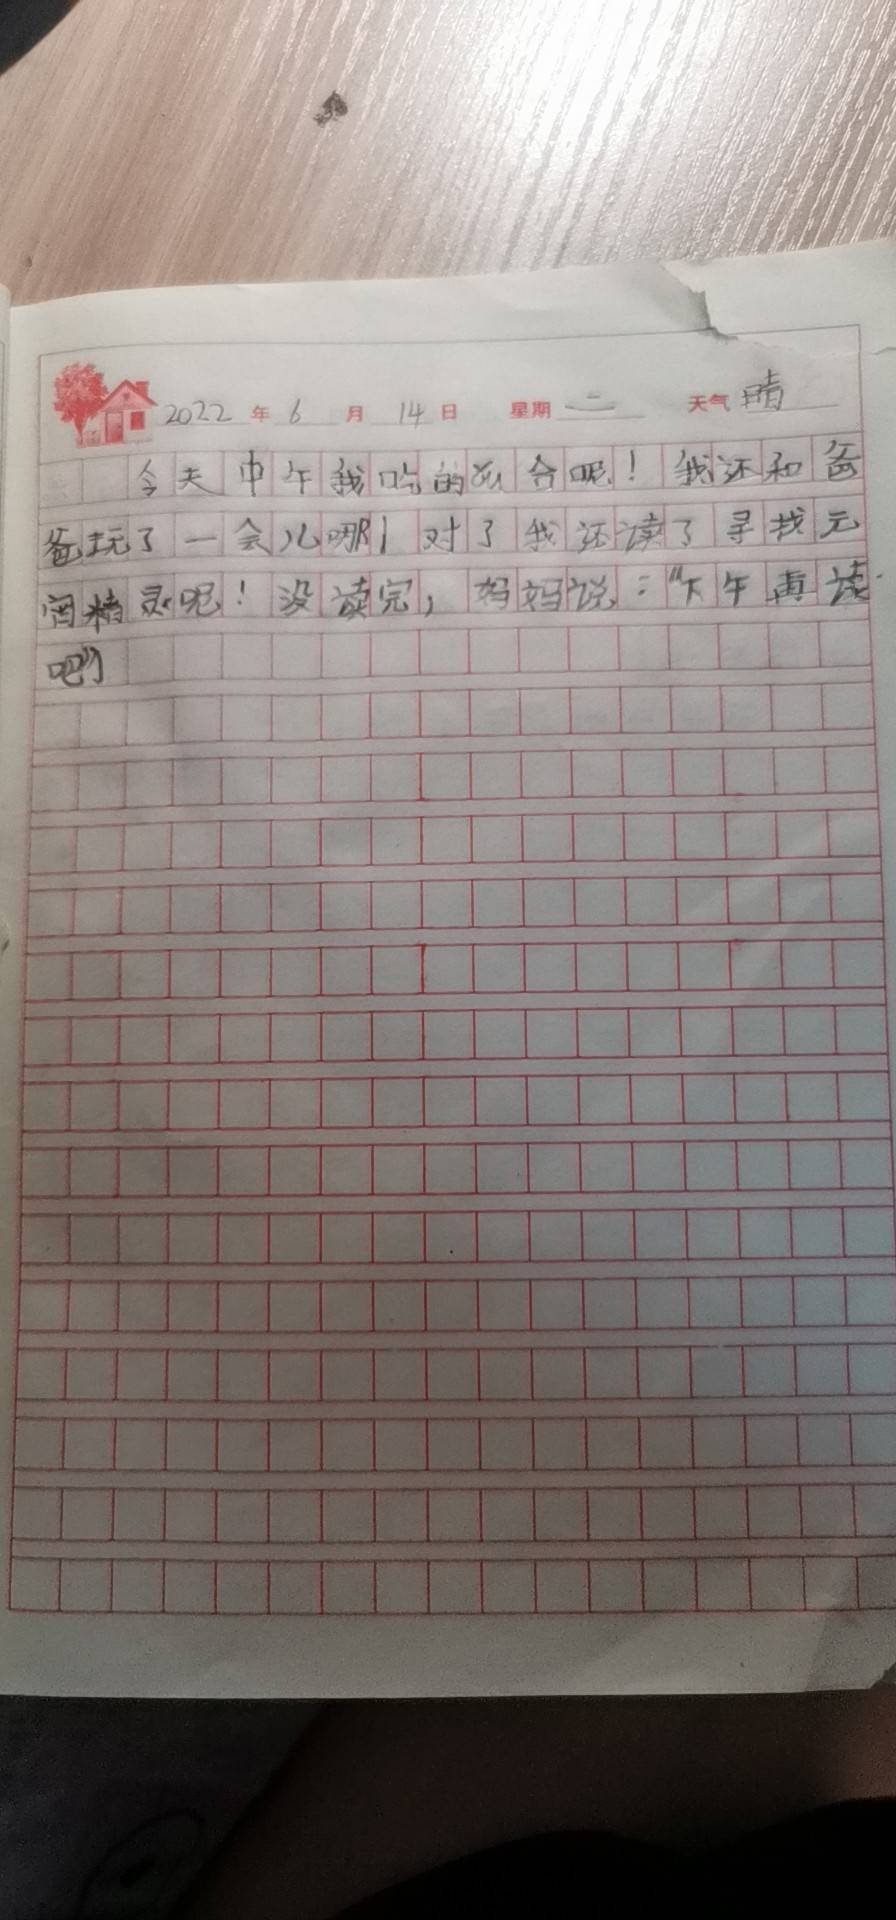 2022年6月14日 星期二 天气晴
今天中午我吃的合呢！我还和爸
爸玩了一会儿哪！对了我还读了寻找元
宵精灵呢！没读完，妈妈说："下午再读
吧"